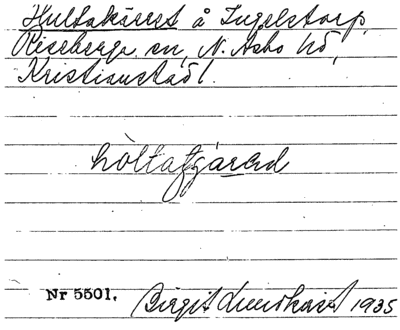 Hultakärret å Ingelstorp,
Riseberga sn, N. Åsbo hd,
Kristianstads l.
Nr 5501. Birgit Lundkvist 1935